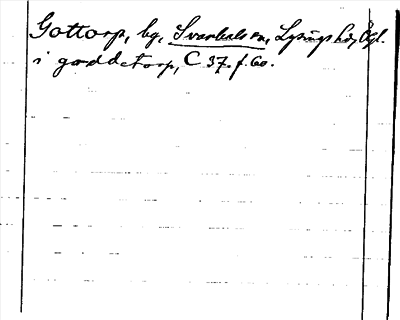 Gottorp, by, Svanhals sn, Lysings hd, Ögl.
i goddetorp, C 37. f. 60.